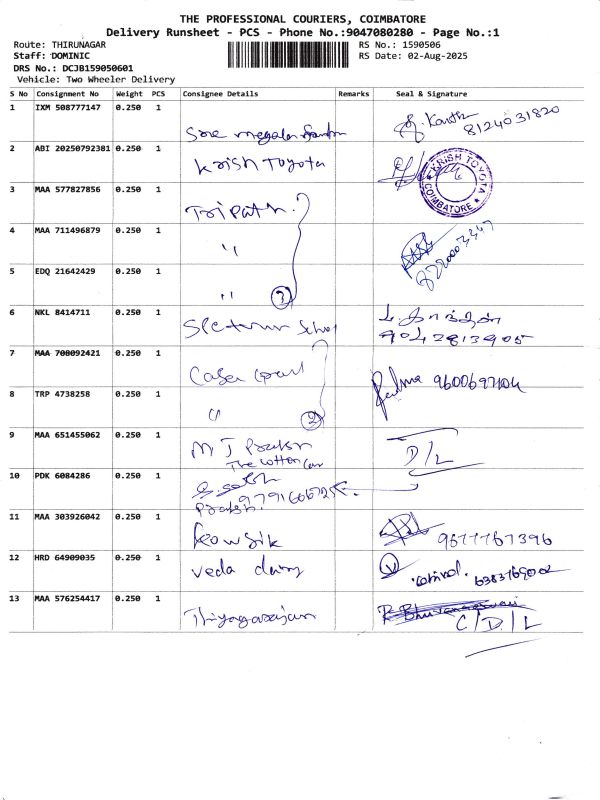 THE PROFESSIONAL COURIERS, COIMBATORE
Delivery Runsheet - PCS - Phone No.:9047080280 - Page No.:1
Route: THIRUNAGAR RS No.: 1590506
Staff: DOMINIC RS Date: 02-Aug-2025
DRS No.: DCJB159050601
Vehicle: Two Wheeler Delivery
S No Consignment No Weight PCS Consignee Details Remarks Seal & Signature
1 IXM 508777147 0.250 1 Sree 8124031820
2 ABI 20250792381 0.250 1 Krish Toyota KRISH TOYOTA COIMBATORE
3 MAA 577827856 1 Tripath
4 MAA 711496879 0.250 1 "
5 EDQ 21642429 0.250 1 " 3
6 NKL 8414711 0.250 1 9042813905
7 MAA 700092421 0.250 1
8 TRP 4738258 0.250 1 " 2
9 MAA 651455062 0.250 1 M J D/L
The Cotton
10 PDK 6084286 0.250 1
11 MAA 303926042 0.250 1 Kowsik 9677767396
12 HRD 64909035 0.250 1 Veda dairy
13 MAA 576254417 0.250 1 Thiyagarajan C/D/L